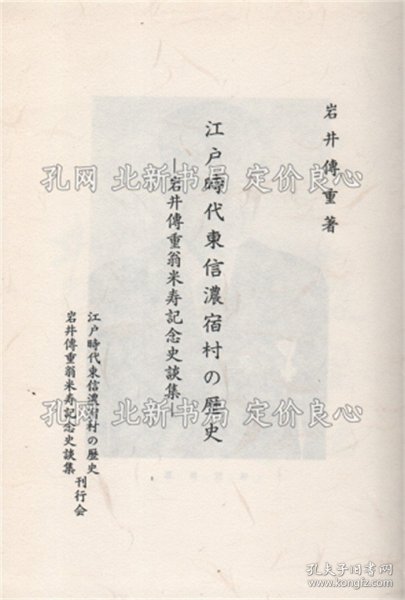 岩井傳重著
江戸時代東信濃宿村の歴史
—岩井傳重翁米寿記念史談集—
江戸時代東信濃宿村の歴史
岩井傳重翁米寿記念史談集
刊行会
孔网 北新书局 定价良心
孔网 北新书局 定价良心
孔网 北新书局 定价良心
孔夫子旧书网